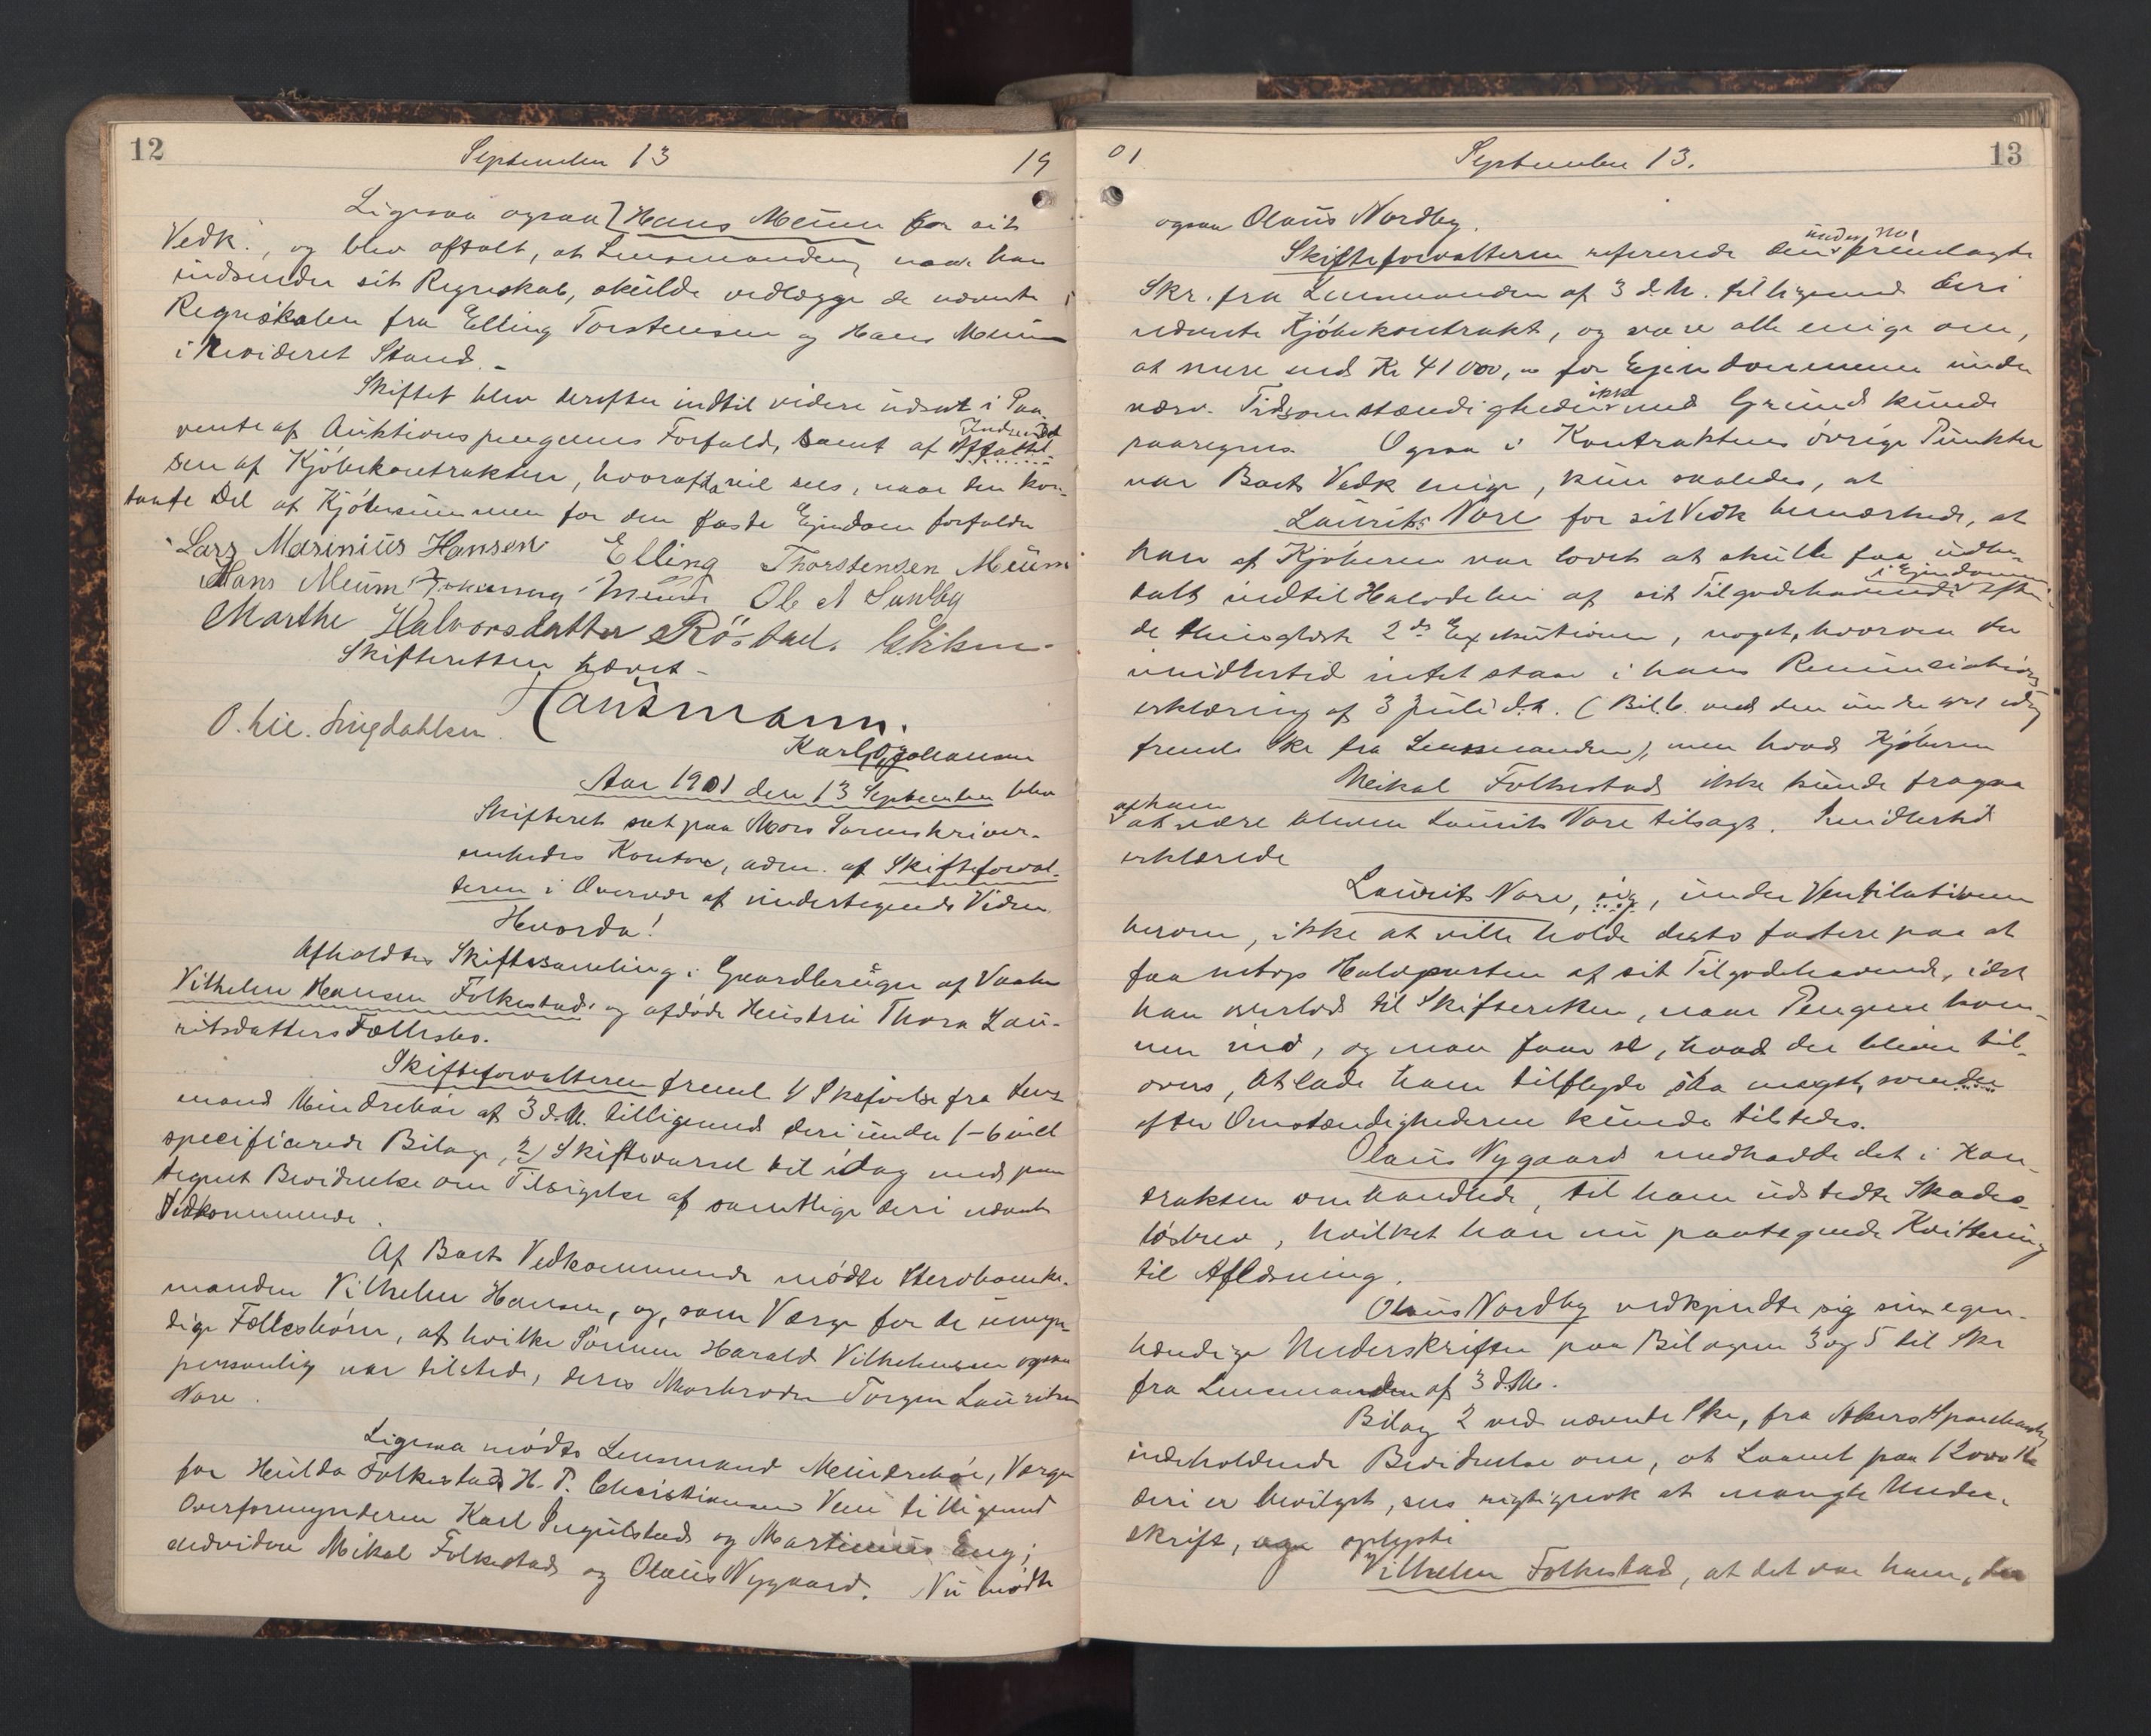 12
September 13
19
Ligesaa ogsaa [Hans Meum for sit
Vedk., og blev aftalt, at Lensmanden, naar han
indsender sit Regnskab, skulde vedlægge de nævnte
Regnskaber fra Elling Torstensen og Hans Meum
i revideret Stand. –
Skiftet blev derefter indtil videre udsat i Paa-
vente af Auktionspengenes Forfald, samt af
sen af Kjøbekontrakten, hvoraf da vil sees, naar den kon-
tante Del af Kjøbesummen for den faste Ejendom forfalder
Lars Marinius Hansen Elling Thorstensen Meum
Hans Meum Meum Ole A Sundby
Marthe Halvorsdatter Röstad.
Skifteretten hævet –
Hansmann.
O. Lie. Lingdahlsen.
Karl Johansen
Aar 1901 den 13 September blev
Skifteret sat paa Mors Sorenskriver-
embedes Kontor, adm. af Skifteforval-
teren i Overvær af undertegnede Vidner.
Hvorda!
Afholdtes Skiftesamling i Gaardbruger af Vaale
Vilhelm Hansen Folkestads og afdøde Hustru Thora Lau-
ritsdatters Fællesbo.
Skifteforvalteren freml. 1/ Skrivelse fra Lens-
mand Meindrebøe af 3 d.M. tilligemed deri under 1-6 incl
specificerede Bilage, 2) Skiftevarsel til idag med paa
tegnet Bevidnelse om Tilsigelse af samtlige deri nævnte
Vedkommende.
Af Boets Vedkommende mødte Stervboenke-
manden Vilhelm Hansen, og, som Værge for de umyn-
dige Fællesbørn, af hvilke Sønnen Harald Vilhelmsen ogsaa
personlig var tilstede, deres Morbroder Torger Lauritsen
Nore.
Ligesaa mødte Lensmand Meindrebøe, Værge
for Hulda Folkestad, H. P. Christiansen Vem tilligemed
Overformynderen Karl Ingulstad og Martinius Eng;
endvidere Mikal Folkestad og Olaus Nygaard. Nu mødte
01
September 13.
13
ogsaa Olaus Nordby.
under No 1
Skifteforvalteren refererede den fremlagte
Skr. fra Lensmanden af 3 d.M. tilligemed deri
nævnte Kjøbekontrakt, og vare alle enige om,
at mere end Kr 41000,00 for Ejendommen under
ikke
nærv. Tidsomstændigheder med Grund kunde
paaregnes. Ogsaa i Kontraktens øvrige Punkter
var Boets Vedk enige, kun saaledes, at
Laurits Nore for sit Vedk bemærkede, at
han af Kjøberen var lovet at skulle faa udbe-
i Ejendommen
talt indtil Halvdelen af sit Tilgodehavende efter
de thinglæste 2de Exekutioner, noget, hvorom der
imidlertid intet staar i hans Renunciations
erklæring af 3 Juli d.A. (Bil. 6. ved den under No 1 idag
fremlr Skr fra Lensmanden), men hvad Kjøberen
Meikal Folkestad ikke kunde fragaa
af ham
at være bleven Laurits Nore tilsagt. Imidlertid
erklærede
Laurits Nore, sig, under Ventilationen
herom, ikke at ville holde desto fastere paa at
faa netop Halvparten af sit Tilgodehavende, idet
han overlod til Skifteretten, naar Pengene kom-
mer ind, og man faar se, hvad der bliver til-
overs, at lade ham tilflyde saa meget, som der
efter Omstændighederne kunde tilstedes.
Olaus Nygaard medhadde det i Kon-
trakten omhandlede, til ham udstedte Skades-
løsbrev, hvilket han nu paategnede Kvittering
til Aflæsning.
Olaus Nordby vedkjendte sig sin egen-
hændige Underskrift paa Bilagene 3 og 5 til Skr
fra Lensmanden af 3 d.M.
Bilag 2 ved nævnte Skr, fra Akers Sparebank,
indeholdende Bevidnelse om, at Laanet paa 12000 Kr
deri er bevilget, sees rigtignok at mangle Under-
skrift, oplyste
Vilhelm Folkestad, at det var ham, der